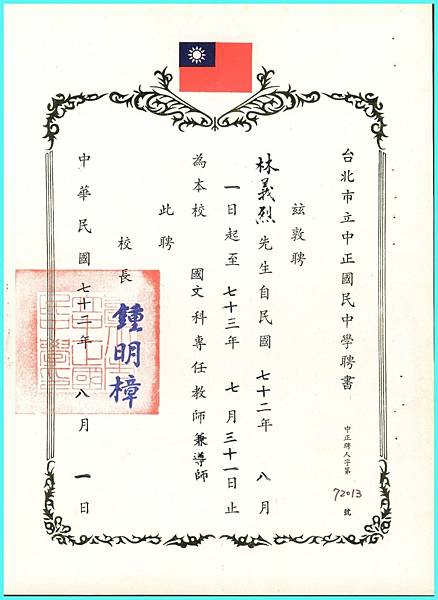 台北市立中正國民中學聘書
中正聘人字第 72013 號
茲敦聘
林義烈先生自民國 七十二年 八月
一日起至七十三年 七月三十一日止
為本校 國文科專任教師兼導師
此聘
校長 鍾明樟
中華民國七十二年八月一日